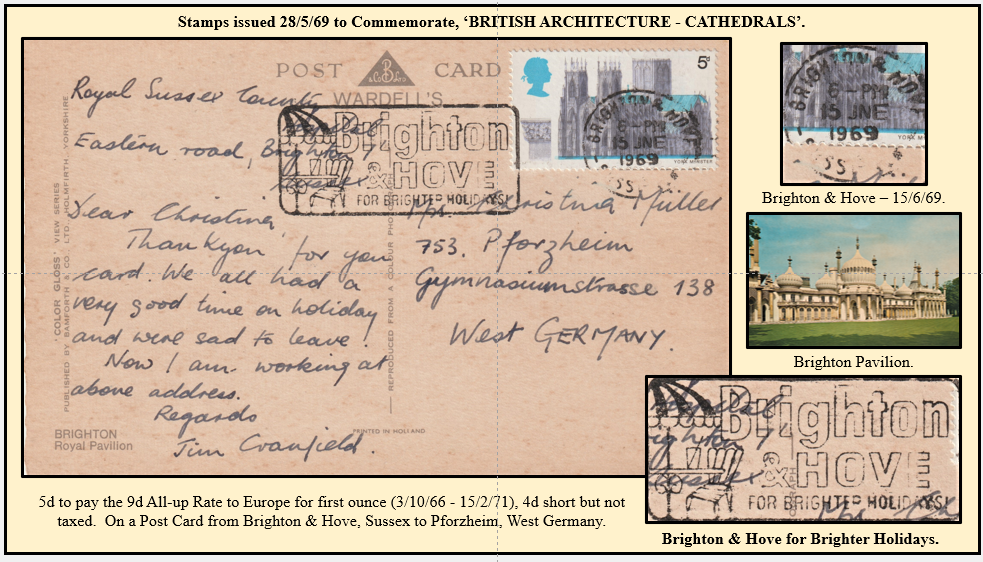 Stamps issued 28/5/69 to Commemorate, ‘BRITISH ARCHITECTURE - CATHEDRALS’.
POST CARD
B & Co Ltd
WARDELL'S
Royal Sussex County
Hospital
Eastern road, Brighton 7
Sussex
Dear Christina,
Thankyou for your
card. We all had a
very good time on holiday
and were sad to leave.
Now I am working at
above address.
Regards
Jim Cranfield.
"COLOR GLOSS" VIEW SERIES
PUBLISHED BY BAMFORTH & CO. LTD., HOLMFIRTH, YORKSHIRE
REPRODUCED FROM A COLOUR PHOTOGRAPH
BRIGHTON
Royal Pavilion
PRINTED IN HOLLAND
Brighton
& HOVE
FOR BRIGHTER HOLIDAYS!
5d
YORK MINSTER
BRIGHTON & HOVE
6-PM
15 JNE
1969
Christina Müller
753. Pforzheim
Gymnasiumstrasse 138
West GERMANY.
BRIGHTON & HOVE
6-PM
15 JNE
1969
YORK M
Brighton & Hove – 15/6/69.
Brighton Pavilion.
Brighton
& HOVE
FOR BRIGHTER HOLIDAYS!
Brighton & Hove for Brighter Holidays.
5d to pay the 9d All-up Rate to Europe for first ounce (3/10/66 - 15/2/71), 4d short but not
taxed. On a Post Card from Brighton & Hove, Sussex to Pforzheim, West Germany.